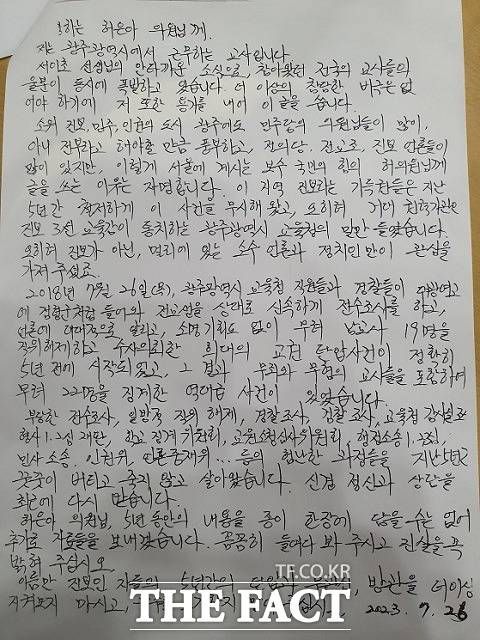 하는 허은아 의원님께.
저는 광주광역시에서 근무하는 교사입니다
서이초 선생님의 안타까운 소식으로, 참아왔던 전국의 교사들의
울분이 동시에 폭발하고 있습니다. 더 이상의 참담한 비극은 없
어야 하기에 저 또한 용기를 내어 이 글을 씁니다.
소위 진보, 민주, 인권의 도시 광주에도 민주당의 의원님들이 많이,
아니 전부라고 해야할 만큼 풍부하고, 정의당. 전교조. 진보 언론들이
많이 있지만, 이렇게 서울에 계시는 보수 국민의 힘의 허의원님께
글을 쓰는 이유는 자명합니다. 이 지역 진보라는 가득한들은 지난
5년간 철저하게 이 사건을 무시해 왔고, 오히려 거대
진보 3선 교육감이 통치하는 광주광역시 교육청의 말만 들었습니다.
오히려 진보가 아닌, 멀리에 있는 소수 언론과 정치인만이 관심을
가져 주셨죠.
2018년 7월 26일(목), 광주광역시 교육청 직원들과 경찰들이 여고
에 점령군처럼 들어와 전교생을 상대로 신속하게 전수조사를 하고,
언론에 대대적으로 알리고, 소명기회도 없이 무려 남교사 19명을
직위해제하고 수사의뢰한 희대의 교권 탄압사건이 정확히
5년 전에 시작되었고, 그 결과 무죄와 무혐의 교사들을 포함하여
무려 22명을 징계한 역대급 사건이 있었습니다.
부당한 전수조사, 일방적 직위 해제, 경찰조사, 검찰 조사, 교육청 감사실
형사 1.2심 재판, 학교 징계 위원회, 교원소청심사위원회, 행정소송 1.2심,
민사 소송. 인권위, 언론중재위... 등의 험난한 과정들을 지난 5년간
꿋꿋이 버티고 죽지 않고 살아왔습니다. 신경 정신과 상담을
최근에 다시 받습니다.
허은아 의원님, 5년 동안의 내용을 종이 한장에 담을 수는 없어
추가로 자료들을 보내겠습니다. 꼼꼼히 들여다 봐 주시고 진실을 꼭
밝혀 주십시오.
이름만 진보인 자들의 5년간의 방관을 더이상
지켜보지 마시고, 2023. 7. 26
TF.CO.KR
THE FACT